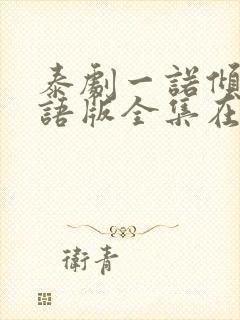 泰劇一諾傾
語版全集在
衛青